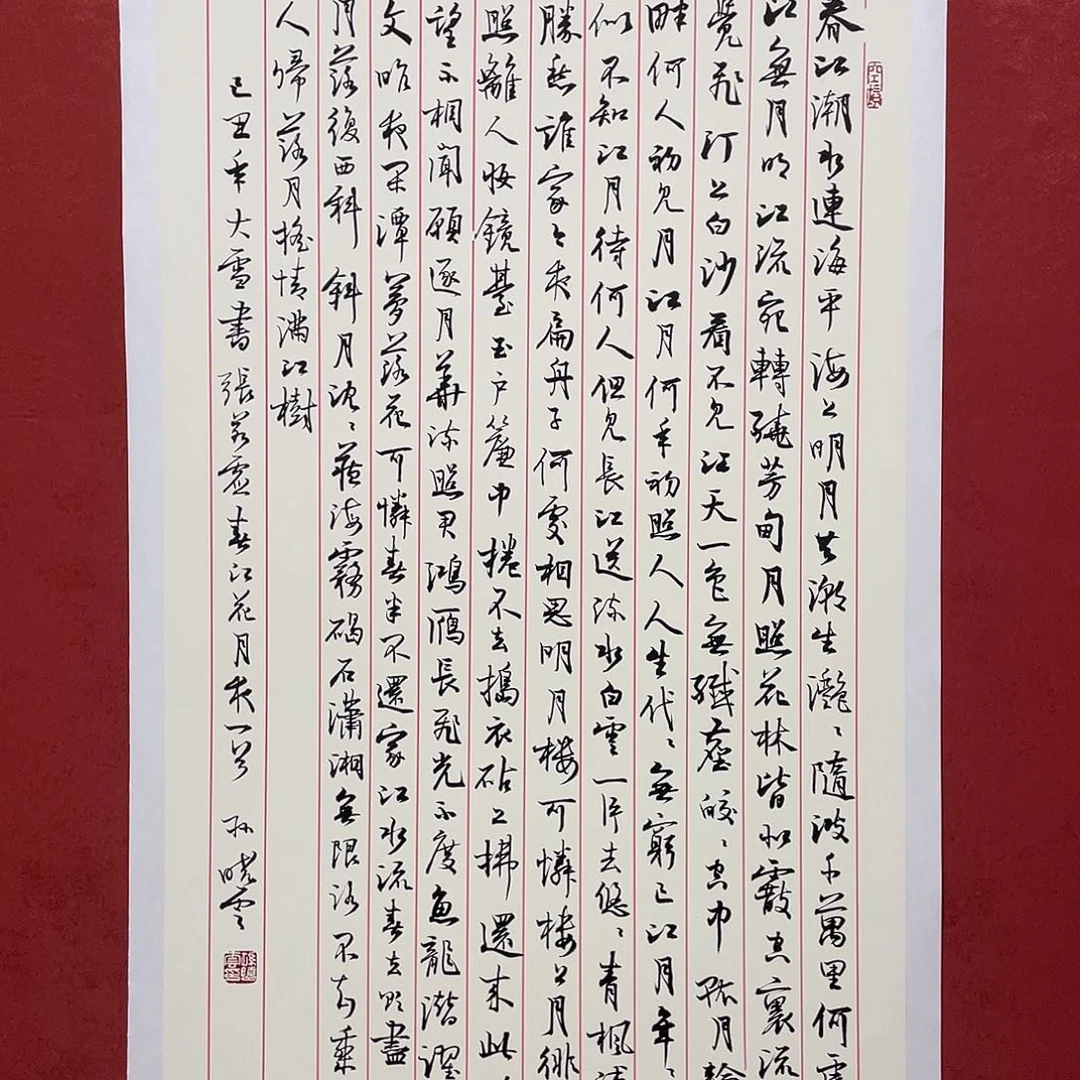 春江潮水連海平海上明月共潮生灩〻隨波千萬里何處
江無月明江流宛轉繞芳甸月照花林皆似霰空裏流
覺飛汀上白沙看不見江天一色無纖塵皎〻空中孤月輪
畔何人初見月江月何年初照人人生代〻無窮已江月年〻
似不知江月待何人但見長江送流水白雲一片去悠〻青楓浦
勝愁誰家今夜扁舟子何處相思明月樓可憐樓上月徘
照離人妝鏡臺玉戶簾中捲不去搗衣砧上拂還來此
望不相聞願逐月華流照君鴻雁長飛光不度魚龍潛躍
文昨夜閑潭夢落花可憐春半不還家江水流春去欲盡
月落復西斜斜月沈〻藏海霧碣石瀟湘無限路不知乘
人歸落月搖情滿江樹
己丑年大雪書張若虛春江花月夜一首 孫曉雲